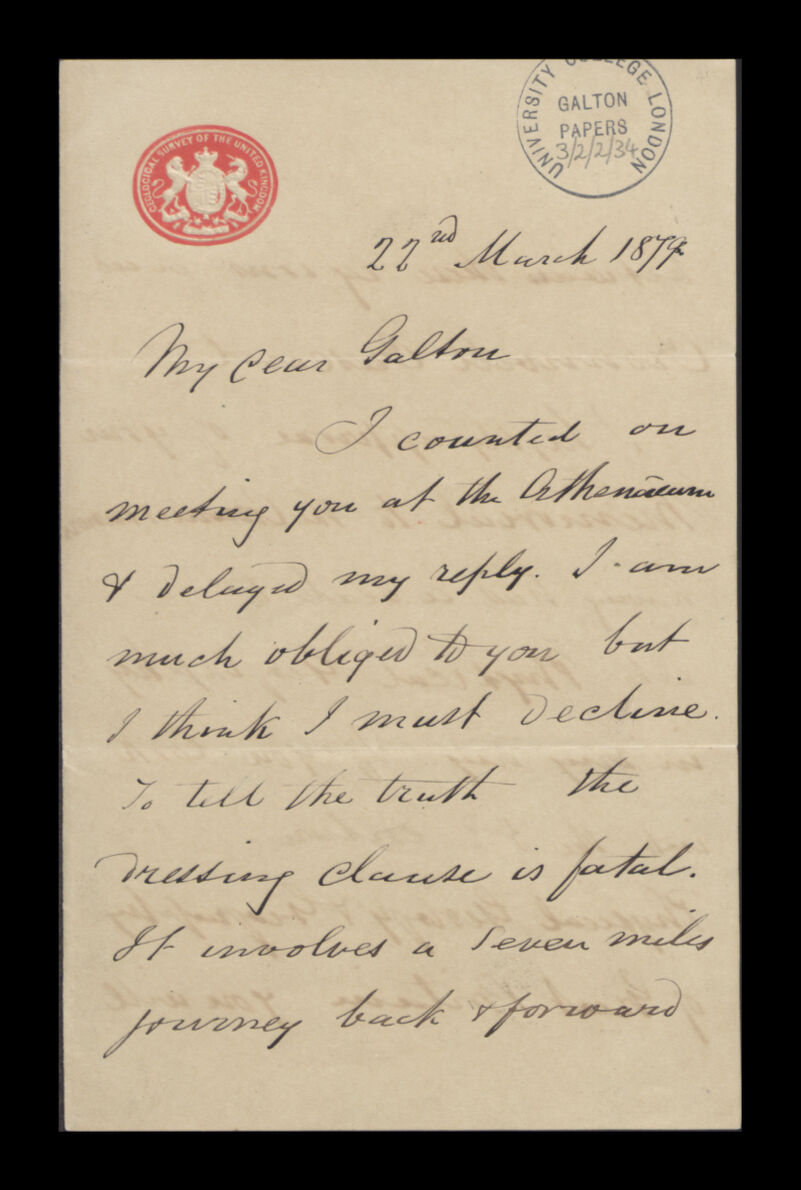 GEOLOGICAL SURVEY OF THE UNITED KINGDOM
UNIVERSITY COLLEGE LONDON
GALTON
PAPERS
3/2/2/34
22nd March 1879
My dear Galton
I counted on
meeting you at the Athenaeum
& delayed my reply. I am
much obliged to you but
I think I must decline.
To tell the truth the
dressing clause is fatal.
It involves a seven miles
journey back & forward